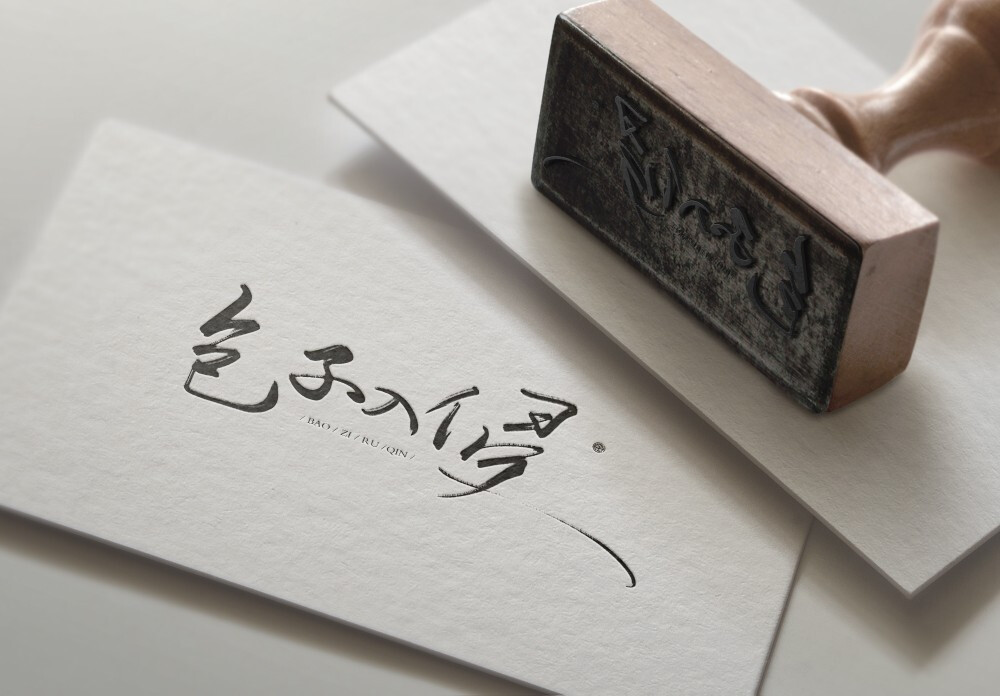 包子入侵
/ BAO / ZI / RU /QIN /